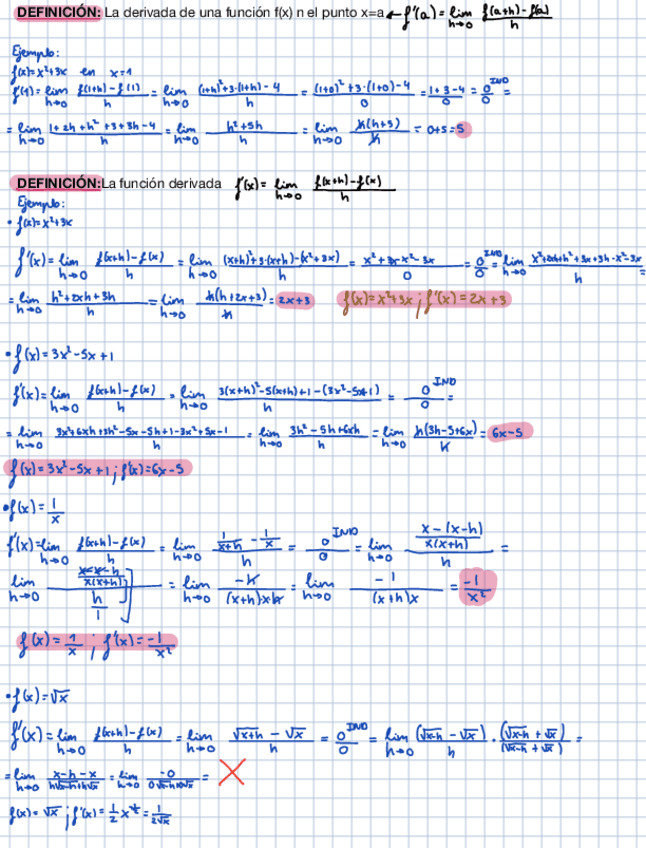 DEFINICIÓN: La derivada de una función f(x) n el punto x=a ← f'(a) = lim h→0 (f(a+h)-f(a))/h
Ejemplo:
f(x)=x²+3x en x=1
f'(1) = lim h→0 (f(1+h)-f(1))/h = lim h→0 ((1+h)²+3·(1+h)-4)/h = ((1+0)²+3·(1+0)-4)/0 = (1+3-4)/0 = 0/0 IND =
= lim h→0 (1+2h+h²+3+3h-4)/h = lim h→0 (h²+5h)/h = lim h→0 h(h+5)/h = 0+5=5
DEFINICIÓN: La función derivada f'(x) = lim h→0 (f(x+h)-f(x))/h
Ejemplo:
• f(x)=x²+3x
f'(x) = lim h→0 (f(x+h)-f(x))/h = lim h→0 ((x+h)²+3·(x+h)-(x²+3x))/h = (x²+3x-x²-3x)/0 = 0/0 IND = lim h→0 (x²+2xh+h²+3x+3h-x²-3x)/h =
= lim h→0 (h²+2xh+3h)/h = lim h→0 h(h+2x+3)/h = 2x+3 f(x)=x²+3x ; f'(x)=2x+3
• f(x)=3x²-5x+1
f'(x) = lim h→0 (f(x+h)-f(x))/h = lim h→0 (3(x+h)²-5(x+h)+1-(3x²-5x+1))/h = 0/0 IND =
= lim h→0 (3x²+6xh+3h²-5x-5h+1-3x²+5x-1)/h = lim h→0 (3h²-5h+6xh)/h = lim h→0 h(3h-5+6x)/h = 6x-5
f(x)=3x²-5x+1 ; f'(x)=6x-5
• f(x)=1/x
f'(x) = lim h→0 (f(x+h)-f(x))/h = lim h→0 (1/(x+h) - 1/x)/h = 0/0 IND = lim h→0 ((x-(x-h))/(x(x+h)))/h =
lim h→0 ((x-x-h)/(x(x+h)))/(h/1) = lim h→0 -h/((x+h)·x·h) = lim h→0 -1/((x+h)x) = -1/x²
f(x)=1/x ; f'(x)=-1/x²
• f(x)=√x
f'(x) = lim h→0 (f(x+h)-f(x))/h = lim h→0 (√(x+h) - √x)/h = 0/0 IND = lim h→0 (√(x-h) - √x)/h · (√(x-h) + √x)/(√(x-h) + √x) =
= lim h→0 (x-h-x)/(h√(x-h)+h√x) = lim h→0 -0/(0√(x-h)+0√x) = X
f(x)=√x ; f'(x)=1/2 x^½ = 1/(2√x)